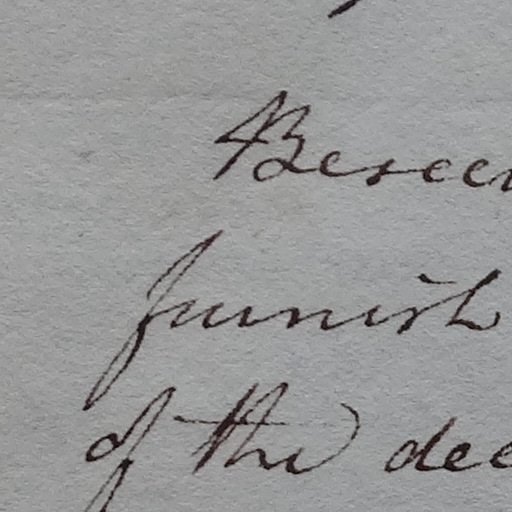 Beseec
furnish
of the dee